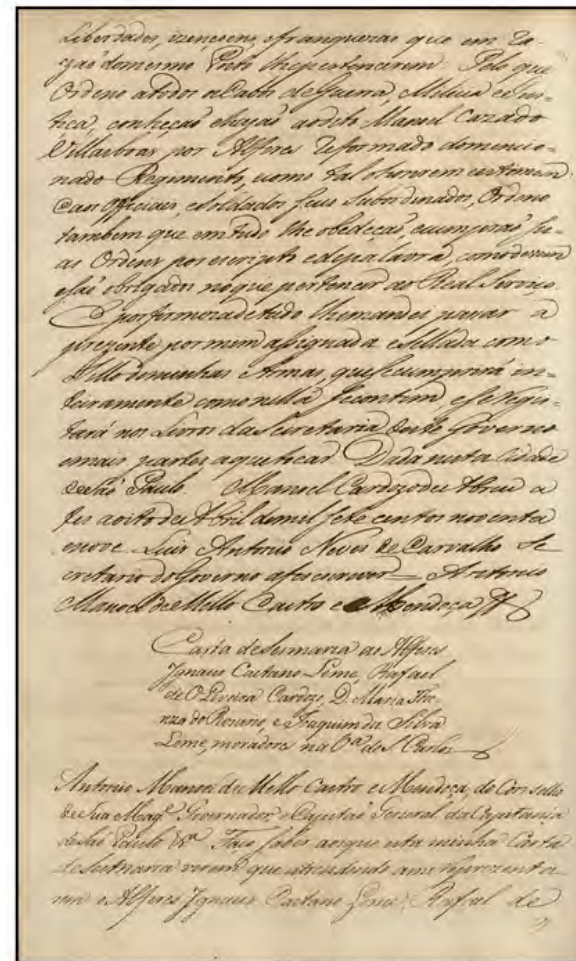 Liberdades, izençoens, e franquezas que em ra-
zaõ do mesmo Posto lhe pertencerem: Pelo que
Ordeno a todos os Cabos de Guerra, Milicia e Jus-
tiça, conheçaõ e hajaõ ao dito Manoel Cazado
Villasboas por Alferes reformado do mencio-
nado Regimento, e como tal o honrem e estimem:
e aos Officiais, e Soldados seus Subordinados, Ordeno
tambem que em tudo lhe obedeçaõ, e cumpraõ su-
as Ordens por escripto e de palavra, como devem
e saõ obrigados no que pertencer ao Real Serviço.
E por firmeza de tudo lhe mandei passar a
prezente por mim assignada e Sellada com o
Sello de minhas Armas, que se cumprirá in-
teiramente como nella se contem, e se regis-
tará nos Livros da Secretaria deste Governo
e mais partes a que tocar. Dada nesta Cidade
de Saõ Paulo. Manoel Cardozo de Abreu a
fes aos oito de Abril de mil sete centos noventa
e nove. Luis Antonio Neves de Carvalho Se-
cretario do Governo a fes escrever = Antonio
Manoel de Mello Castro e Mendoça
Carta de Sesmaria ao Alferes
Ignacio Caetano Leme, Rafael
de Oliveira Cardozo, D. Maria
do Rozario, e Joaquim da Silva
Leme, moradores na V.ª de S. Carlos
Antonio Manoel de Mello Castro e Mendoça, do Conselho
de Sua Mag.e Governador, e Capitaõ General da Capitania
de Saõ Paulo &.ª Faço saber aos que esta minha Carta
de Sesmaria virem que attendendo a me reprezenta-
rem o Alferes Ignacio Caetano Leme, Rafael de